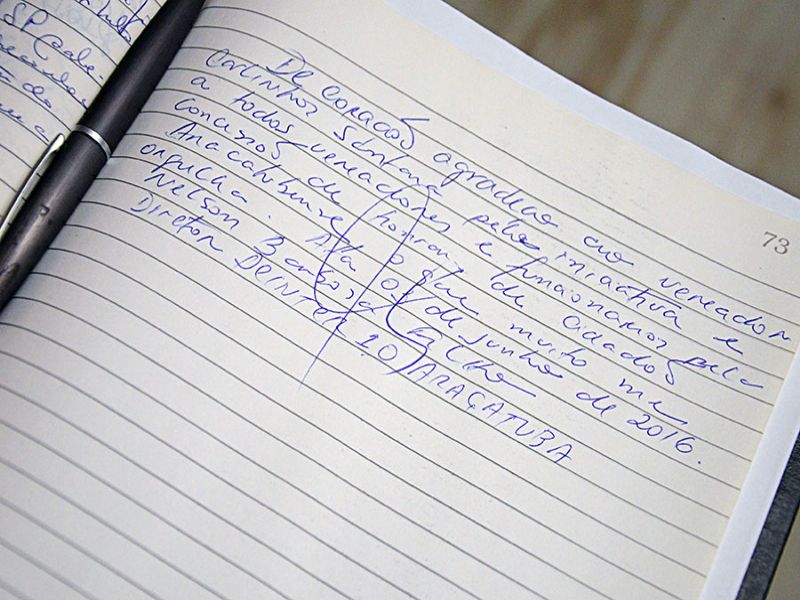 SP
73
De coração agradeço ao vereador
Carlinhos Santana pela iniciativa e
a todos vereadores e funcionarios pela
concessão de honraria de cidadão
Aracatubense, o que muito me
orgulha. Ata 01 de junho de 2016.
Nelson Barbosa Filho
Diretor DEINTER 10/ARAÇATUBA